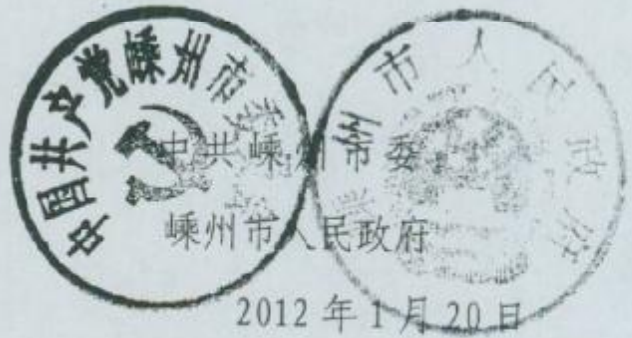 中国共产党嵊州市委
市人民政府
中共嵊州市委
嵊州市人民政府
2012年1月20日